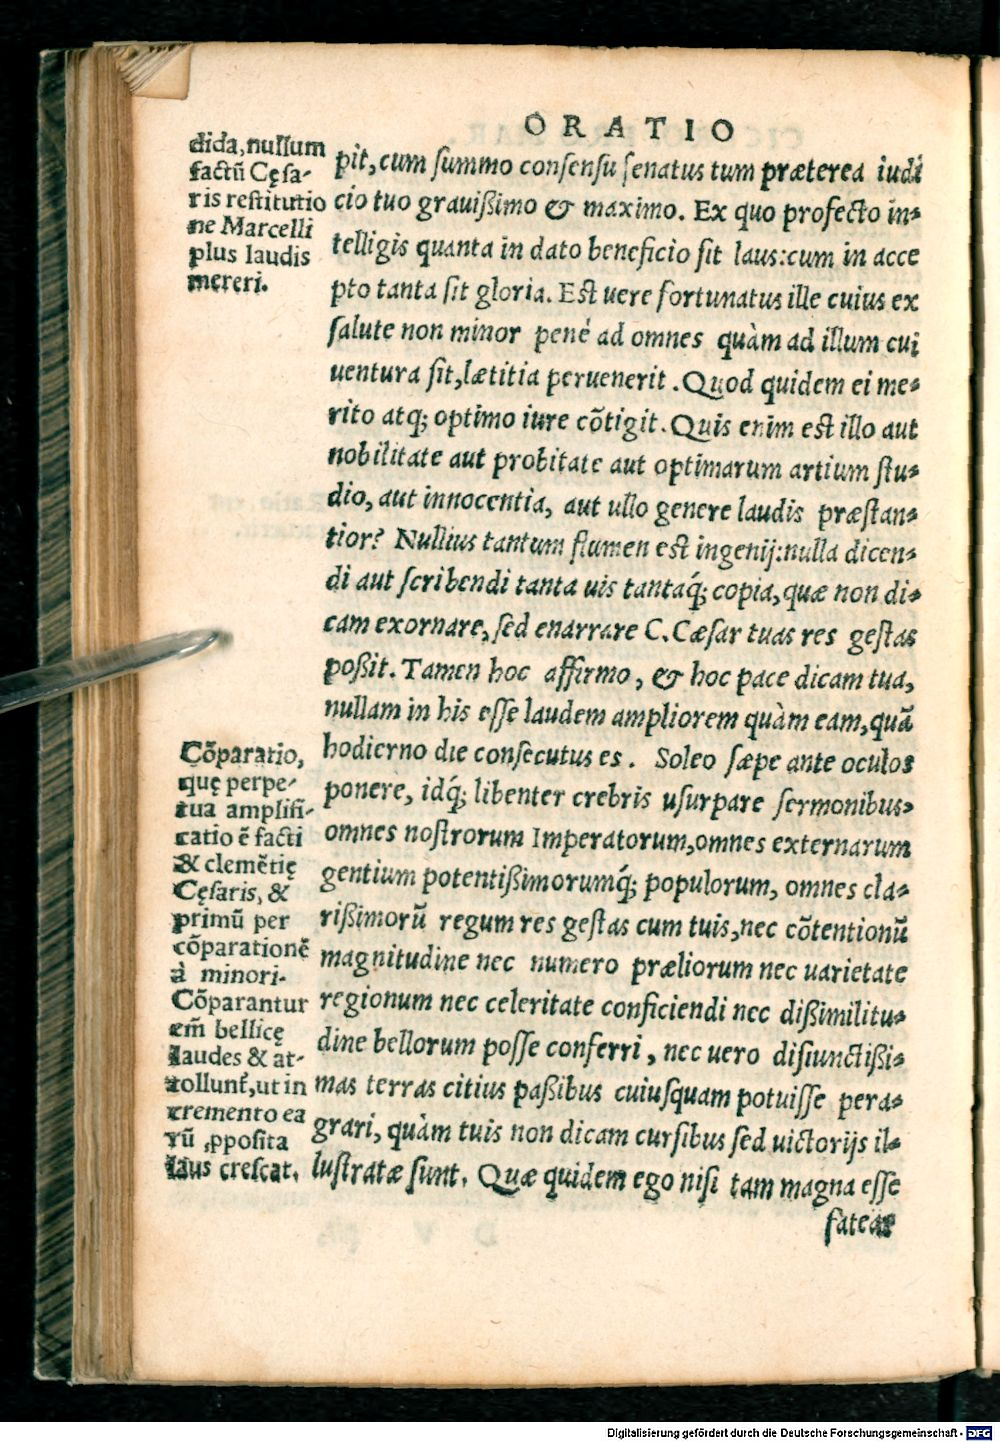 ORATIO
dida, nullum
factũ Cęsa-
ris restitutio
ne Marcelli
plus laudis
mereri.
pit, cum summo consensu senatus tum præterea iudi
cio tuo grauißimo & maximo. Ex quo profecto in-
telligis quanta in dato beneficio sit laus: cum in acce
pto tanta sit gloria. Est uere fortunatus ille cuius ex
salute non minor pené ad omnes quàm ad illum cui
uentura sit, lætitia peruenerit. Quod quidem ei me-
rito atq; optimo iure cõtigit. Quis enim est illo aut
nobilitate aut probitate aut optimarum artium stu-
dio, aut innocentia, aut ullo genere laudis præstan-
tior? Nullius tantum flumen est ingenij: nulla dicen-
di aut scribendi tanta uis tantaq́; copia, quæ non di-
cam exornare, sed enarrare C. Cæsar tuas res gestas
poßit. Tamen hoc affirmo, & hoc pace dicam tua,
nullam in his esse laudem ampliorem quàm eam, quã
hodierno die consecutus es. Soleo sæpe ante oculos
ponere, idq́; libenter crebris usurpare sermonibus,
omnes nostrorum Imperatorum, omnes externarum
gentium potentißimorumq́; populorum, omnes cla-
rißimorũ regum res gestas cum tuis, nec cõtentionũ
magnitudine nec numero præliorum nec uarietate
regionum nec celeritate conficiendi nec dißimilitu-
dine bellorum posse conferri, nec uero disiunctißi-
mas terras citius paßibus cuiusquam potuisse pera-
grari, quàm tuis non dicam cursibus sed uictorijs il-
lustratæ sunt. Quæ quidem ego nisi tam magna esse
fatear
Cõparatio,
quę perpe-
tua amplifi-
catio ẽ facti
& clemẽtię
Cęsaris, &
primũ per
cõparationẽ
à minori.
Cõparantur
em̃ bellicę
laudes & at-
tollunt̃, ut in
cremento ea
rũ ꝓposita
laus crescat.
Digitalisierung gefördert durch die Deutsche Forschungsgemeinschaft - DFG